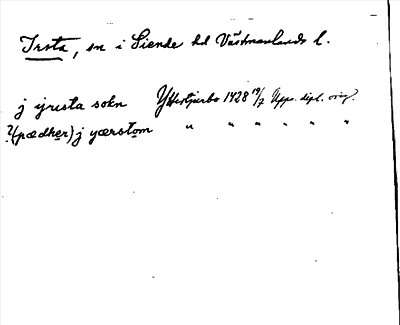 Irsta, sn i Siende hd Västmanlands l.
j yrista sokn Yttertjurbo 1428 19/2 Upps. dipl. orig.
?(pædher) j yærstom " " " " " "